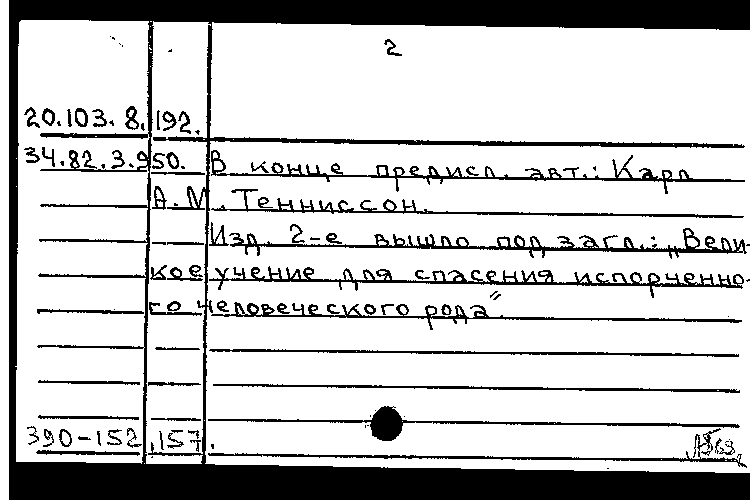 2
20.103.8.192.
34.82.3.950. В конце предисл. авт.: Карл
А.М. Тенниссон.
Изд. 2-е вышло под загл.: „Вели-
кое учение для спасения испорченно-
го человеческого рода”.
390-152,157.